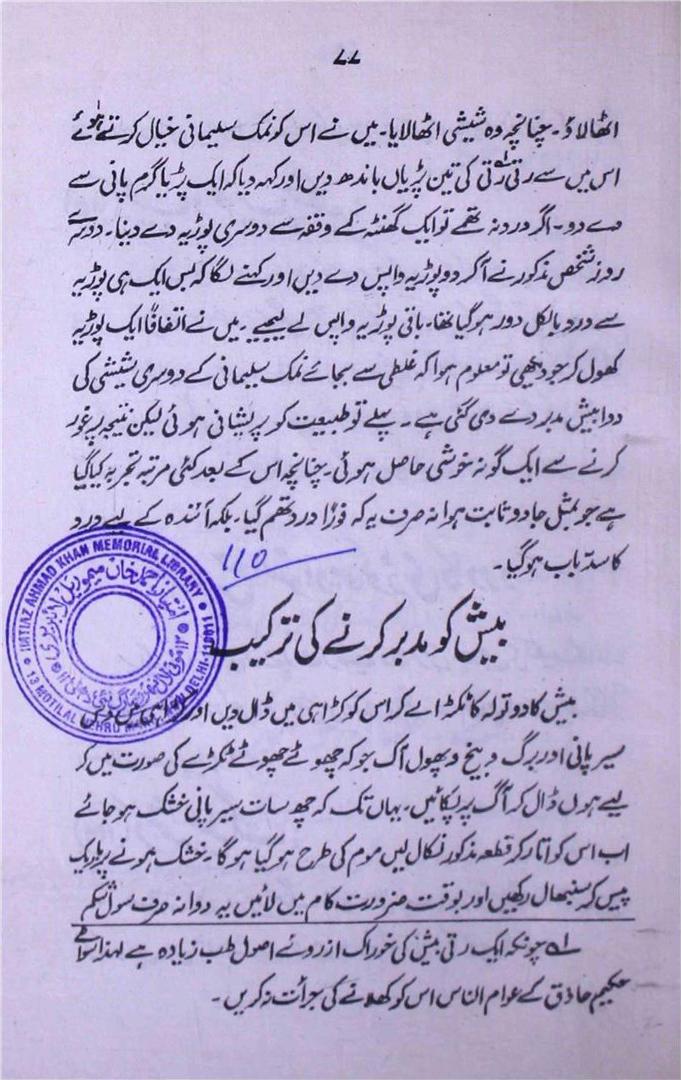 ۷۷
اٹھا لاؤ۔ چنانچہ وہ شیشی اٹھا لایا۔ میں نے اس کو نمک سلیمانی خیال کرتے ہوئے
اس میں سے رتی رتی کی تین پڑیاں باندھ دیں اور کہہ دیا کہ ایک پڑیا گرم پانی سے
دے دو۔ اگر درد نہ تھمے تو ایک گھنٹہ کے وقفہ سے دوسری پوڑیہ دے دینا۔ دوسرے
روز شخص مذکور نے آکر دو پوڑیہ واپس دے دیں اور کہنے لگا کہ بس ایک ہی پوڑیہ
سے درد بالکل دور ہو گیا تھا۔ باقی پوڑیہ واپس لے لیجیے۔ میں نے اتفاقاً ایک پوڑیہ
کھول کر جو دیکھی تو معلوم ہوا کہ غلطی سے بجائے نمک سلیمانی کے دوسری شیشی کی
دوا بیش مدبر دے دی گئی ہے۔ پہلے تو طبیعت کو پریشانی ہوئی لیکن نتیجہ پر غور
کرنے سے ایک گونہ خوشی حاصل ہوئی۔ چنانچہ اس کے بعد کئی مرتبہ تجربہ کیا گیا
ہے جو بمثل جادو ثابت ہوا نہ صرف یہ کہ فوراً درد تھم گیا۔ بلکہ آئندہ کے لیے درد
کا سدّ باب ہو گیا۔
110
IMTIAZ AHMAD KHAN MEMORIAL LIBRARY
امتیاز احمد خان میموریل لائبریری
13 MOTILAL NEHRU DELHI-110011
بیش کو مدبر کرنے کی ترکیب
بیش کا دو تولہ کا ٹکڑا لے کر اس کو کڑاہی میں ڈال دیں اور
سیر پانی اور برگ و بیخ و پھول آک جو کہ چھوٹے چھوٹے ٹکڑے کی صورت میں کر
لیے ہوں ڈال کر آگ پر پکائیں۔ یہاں تک کہ چھ سات سیر پانی خشک ہو جائے
اب اس کو اتار کر قطعہ مذکور نکال لیں موم کی طرح ہو گیا ہو گا۔ خشک ہونے پر باریک
پیس کر سنبھال رکھیں اور بوقت ضرورت کام میں لائیں یہ دوا نہ صرف سول شکم
لہ چونکہ ایک رتی بیش کی خوراک از روئے اصول طب زیادہ ہے لہذا سوائے
حکیم حاذق کے عوام الناس اس کو کھلانے کی جرأت نہ کریں۔